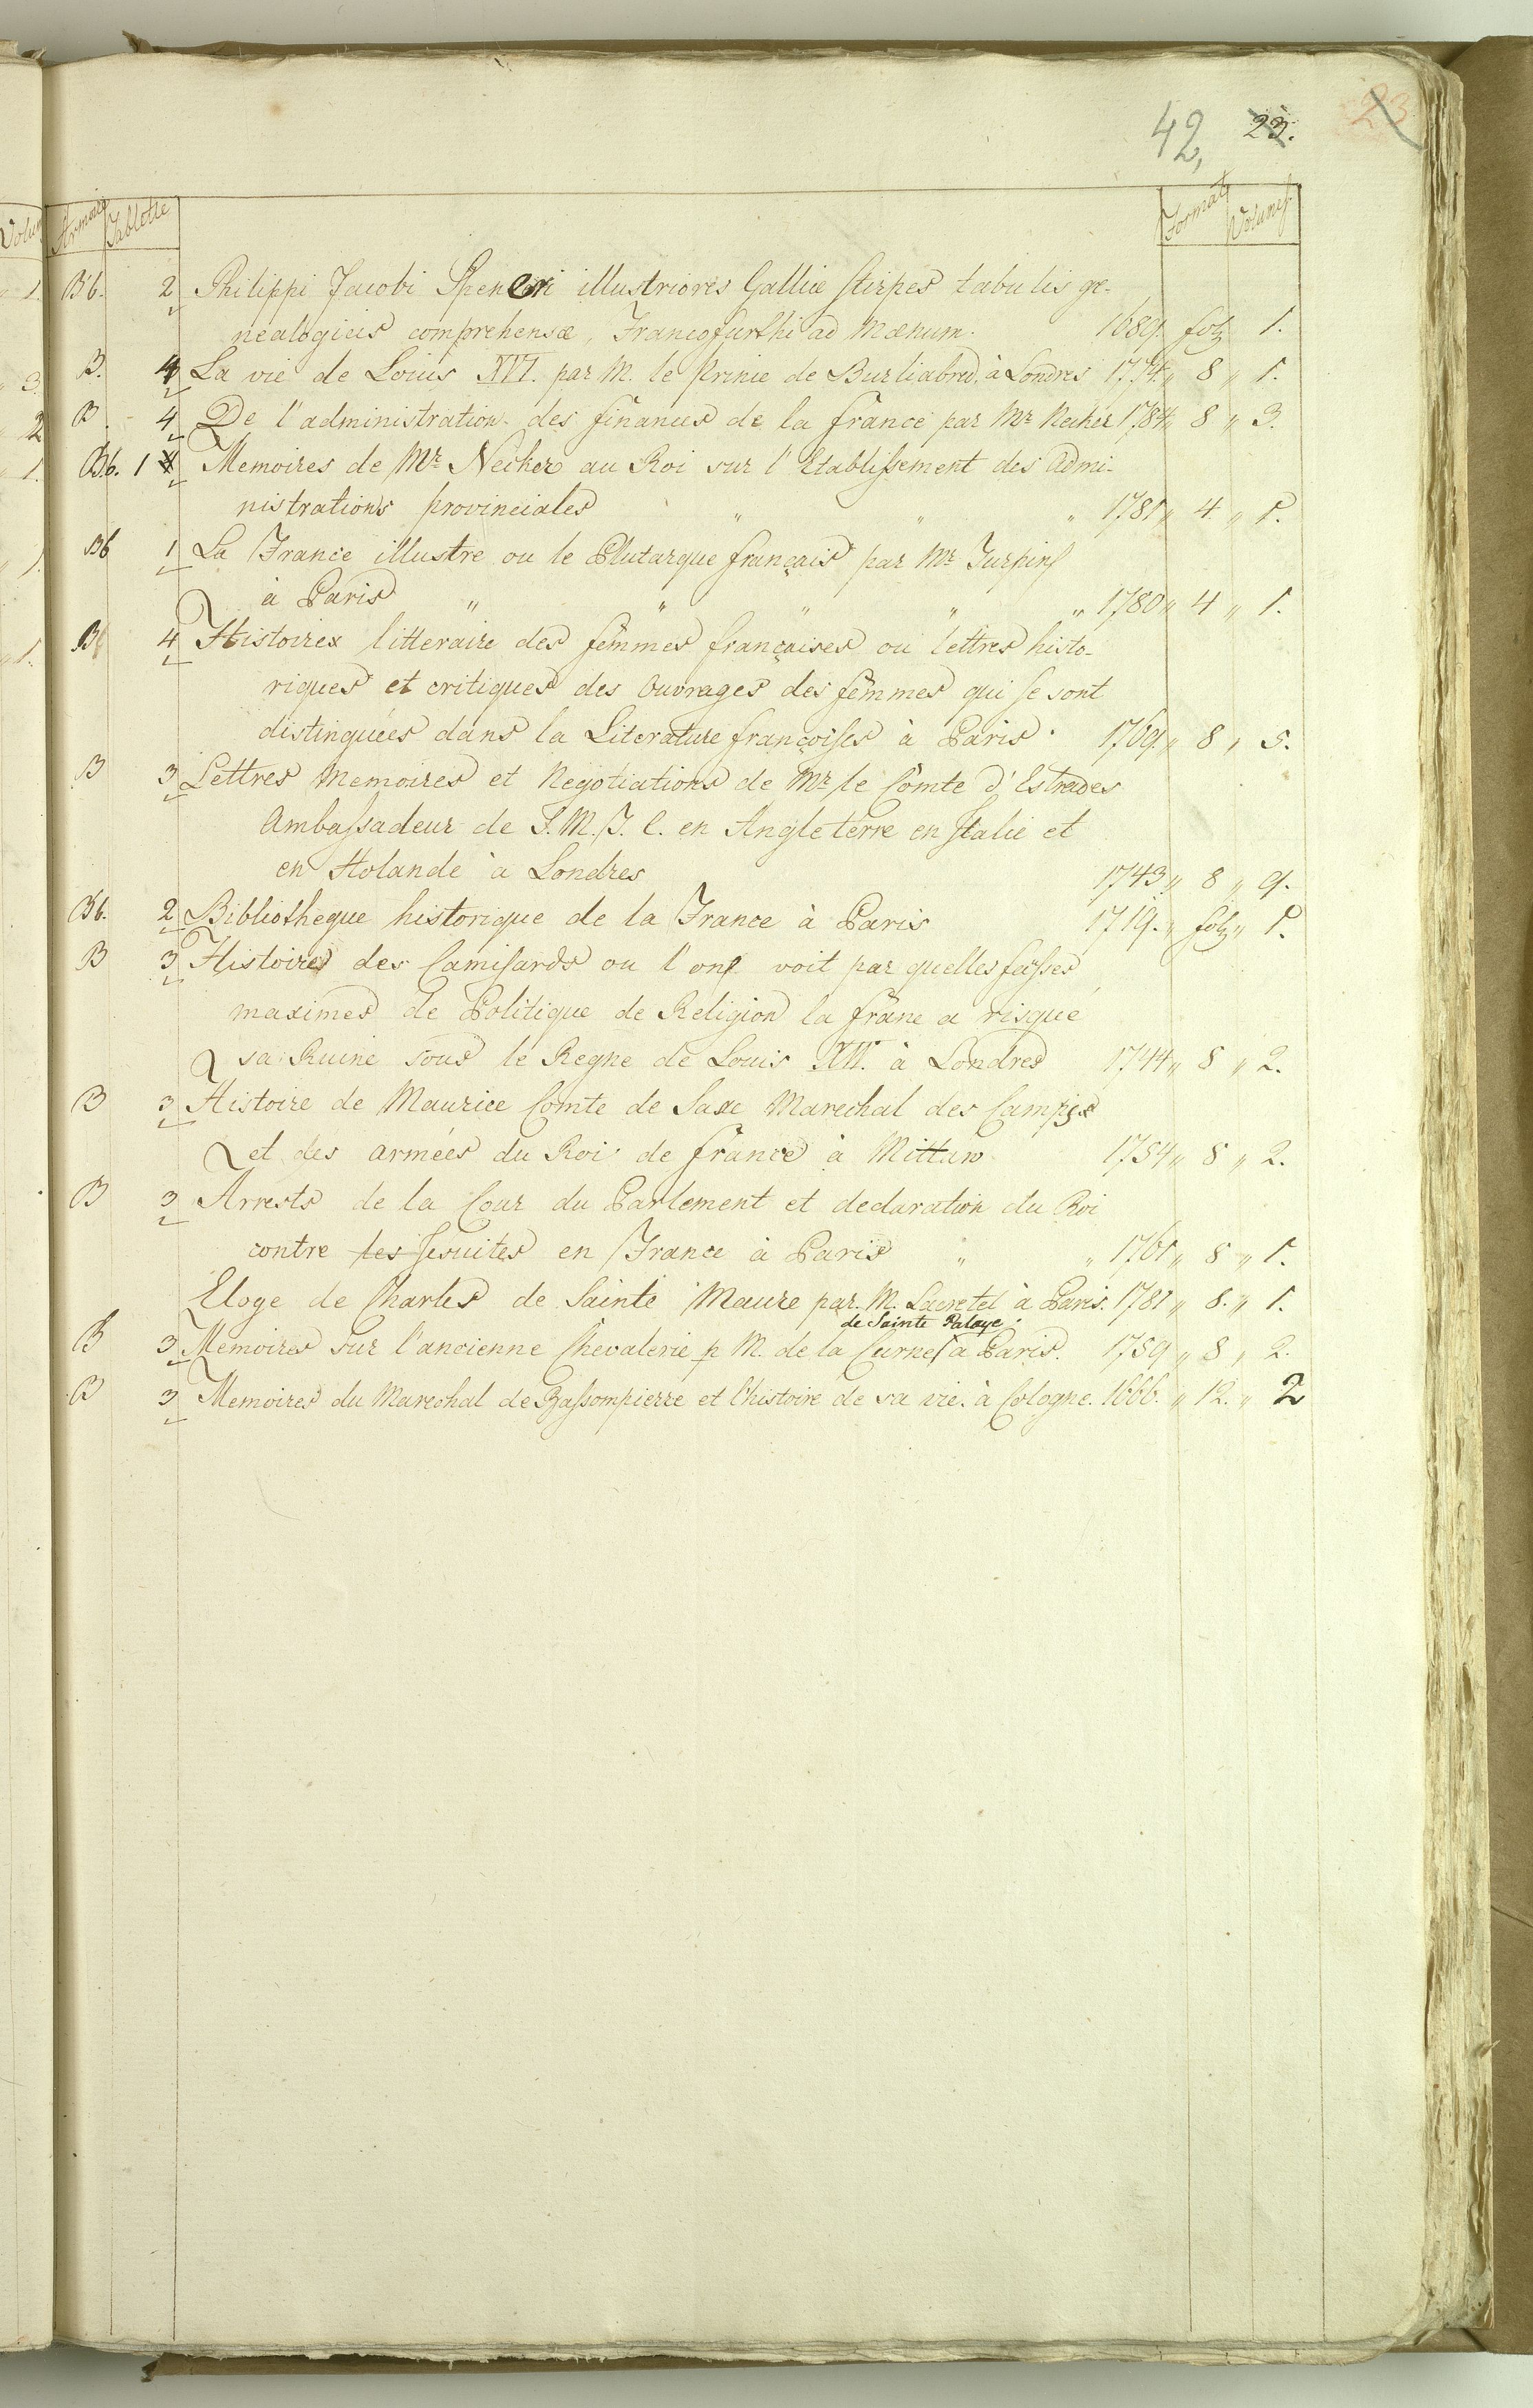 42, 23. 23
Armoire Tablette Format Volumes
Bb. 2 Philippi Jacobi Speneri illustriores Galliæ stirpes tabulis ge-
nealogicis comprehensæ, Francofurthi ad Mœnum. 1689. fol. 1.
B. 4 La vie de Louis XVI. par M. le Prinie de Burliabred. à Londres 1774 „ 8 „ 1.
B. 4 De l'administration des finances de la france par Mr Necker 1784 „ 8 „ 3.
Bb. 1 Memoires de Mr Necker au Roi sur l'Etablissement des Admi-
nistrations provinciales „ „ „ 1781 „ 4 „ 1.
Bb 1 La France illustre ou le Plutarque français par Mr Turpin
à Paris „ „ „ „ „ 1780 „ 4 „ 1.
B 4 Histoire litteraire des femmes françaises ou lettres histo-
riques et critiques des Ouvrages des femmes qui se sont
distinguées dans la Literature françoises à Paris. 1769 „ 8 „ 5.
B 3 Lettres Memoires et Negotiations de Mr le Comte d'Estrades
Ambassadeur de S. M. T. C. en Angleterre en Italie et
en Holande à Londres 1743 „ 8 „ 9.
Bb. 2 Bibliotheque historique de la France à Paris 1719. „ fol „ 1.
B 3 Histoire des Camisards ou l'on voit par quelles fasses
maximes de Politique de Religion la franc a risqué
sa Ruine sous le Regne de Louis XII. à Londres 1744 „ 8 „ 2.
B 3 Histoire de Maurice Comte de Saxe Marechal des Camps
et des armées du Roi de france à Mittaw 1754 „ 8 „ 2.
B 3 Arrests de la Cour du Parlement et declaration du Roi
contre les Jesuites en France à Paris „ „ 1761 „ 8 „ 1.
Eloge de Charles de Sainte Maure par M. Lacretel à Paris. 1781 „ 8. „ 1.
de Sainte Palaye.
B 3 Memoires sur l'ancienne Chevalerie p M. de la Curne à Paris. 1759 „ 8 „ 2.
B 3 Memoires du Marechal de Bassompierre et l'histoire de sa vie. à Cologne. 1666. „ 12. „ 2